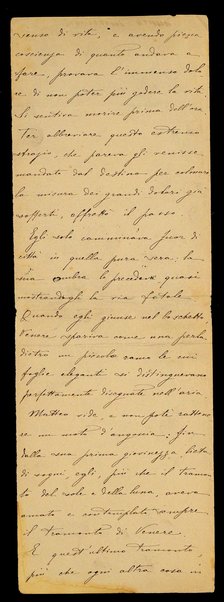 senso di vita, e avendo piena
coscienza di quanto andava a
fare, provava l'immenso dolo
re di non poter più godere la vita.
Si sentiva morire prima dell'ora.
Per abbreviare questo estremo
strazio, che pareva gli venisse
mandato dal destino per colmare
la misura dei grandi dolori già
sofferti, affrettò il passo.
Egli solo camminava fuor di
città in quella pura sera; la
sua ombra lo precedeva quasi
mostrandogli la via fatale.
Quando egli giunse nel boschetto
Venere spariva come una perla
dietro un piccolo ramo le cui
foglie eleganti si distinguevano
perfettamente disegnate nell'aria.
Matteo vide, e non poté ratten
se un moto d'angoscia; fin
dalla sua prima giovinezza lieta
di sogni, egli, più che il tramon
to del sole e della luna, aveva
amato e contemplato sempre
il tramonto di Venere.
E quest'ultimo tramonto,
più che ogni altra cosa in